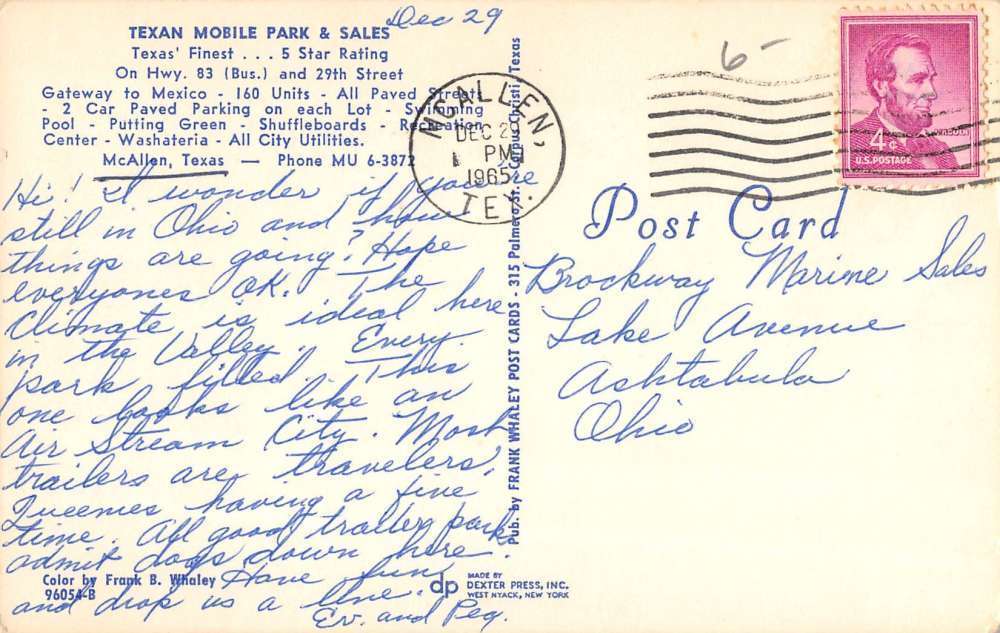 Dec 29
TEXAN MOBILE PARK & SALES
Texas' Finest . . . 5 Star Rating
On Hwy. 83 (Bus.) and 29th Street
Gateway to Mexico - 160 Units - All Paved Streets
- 2 Car Paved Parking on each Lot - Swimming
Pool - Putting Green - Shuffleboards - Recreation
Center - Washateria - All City Utilities.
McAllen, Texas — Phone MU 6-3872
Hi! I wonder if you are
still in Ohio and how
things are going? Hope
everyones OK. The
Climate is ideal here
in the Valley. Every
park filled. This
one looks like an
Air Stream City. Most
trailers are travelers.
Queenies having a fine
time. All good trailer parks
admit dogs down here.
Have fun
and drop us a line.
Ev. and Peg.
Color by Frank B. Whaley
96054-B
Pub. by FRANK WHALEY POST CARDS - 315 Palmero St. - Corpus Christi, Texas
dp MADE BY
DEXTER PRESS, INC.
WEST NYACK, NEW YORK
McALLEN,
DEC 29
PM
1965
TEX.
6-
4¢
LINCOLN
U.S. POSTAGE
Post Card
Brockway Marine Sales
Lake Avenue
Ashtabula
Ohio